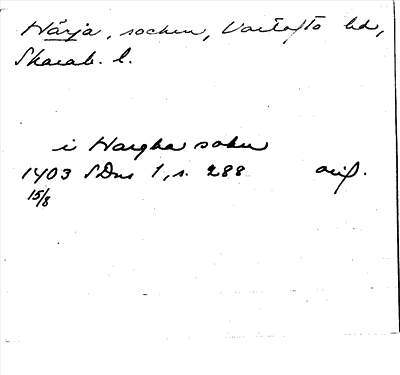 Härja, socken, Vartofta hd,
Skarab. l.
i Hargha sokn
1403 SDns 1, s. 288 orig.
15/8